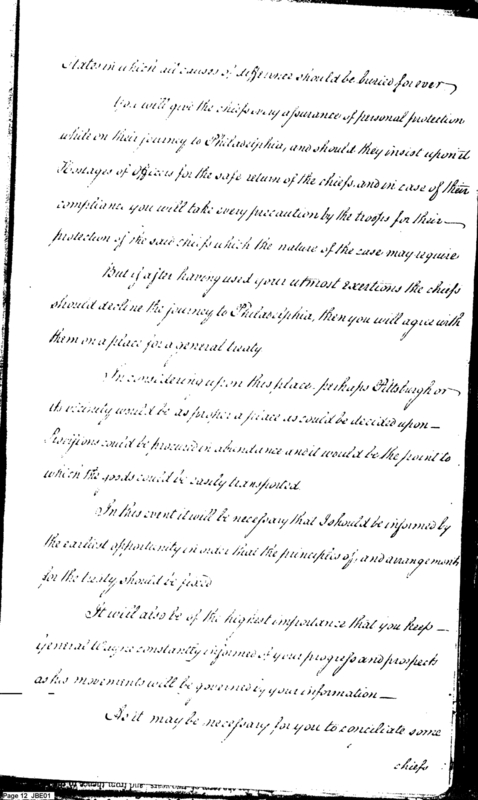 States in which all causes of difference should be buried for ever
You will give the chiefs every assurance of personal protection
while on their journey to Philadelphia, and should they insist upon it
Hostages of officers for the safe return of the chiefs and in case of their
compliance you will take every precaution by the troops for their
protection of the said chiefs which the nature of the case may require
But if after having used your utmost exertions the chiefs
should decline the journey to Philadelphia, then you will agree with
them on a place for a general treaty
In considering upon this place perhaps Pittsburgh or
its vicinity would be as proper a place as could be decided upon
Provisions could be procured in abundance and it would be the point to
which the goods could be easily transported
In this event it will be necessary that I should be informed by
the earliest opportunity in order that the principles of, and arrangements
for the treaty should be fixed
It will also be of the highest importance that you keep
General Wayne constantly informed of your progress and prospects
as his movements will be governed by your information
As it may be necessary for you to conciliate some
chiefs
Page 12 JBE01